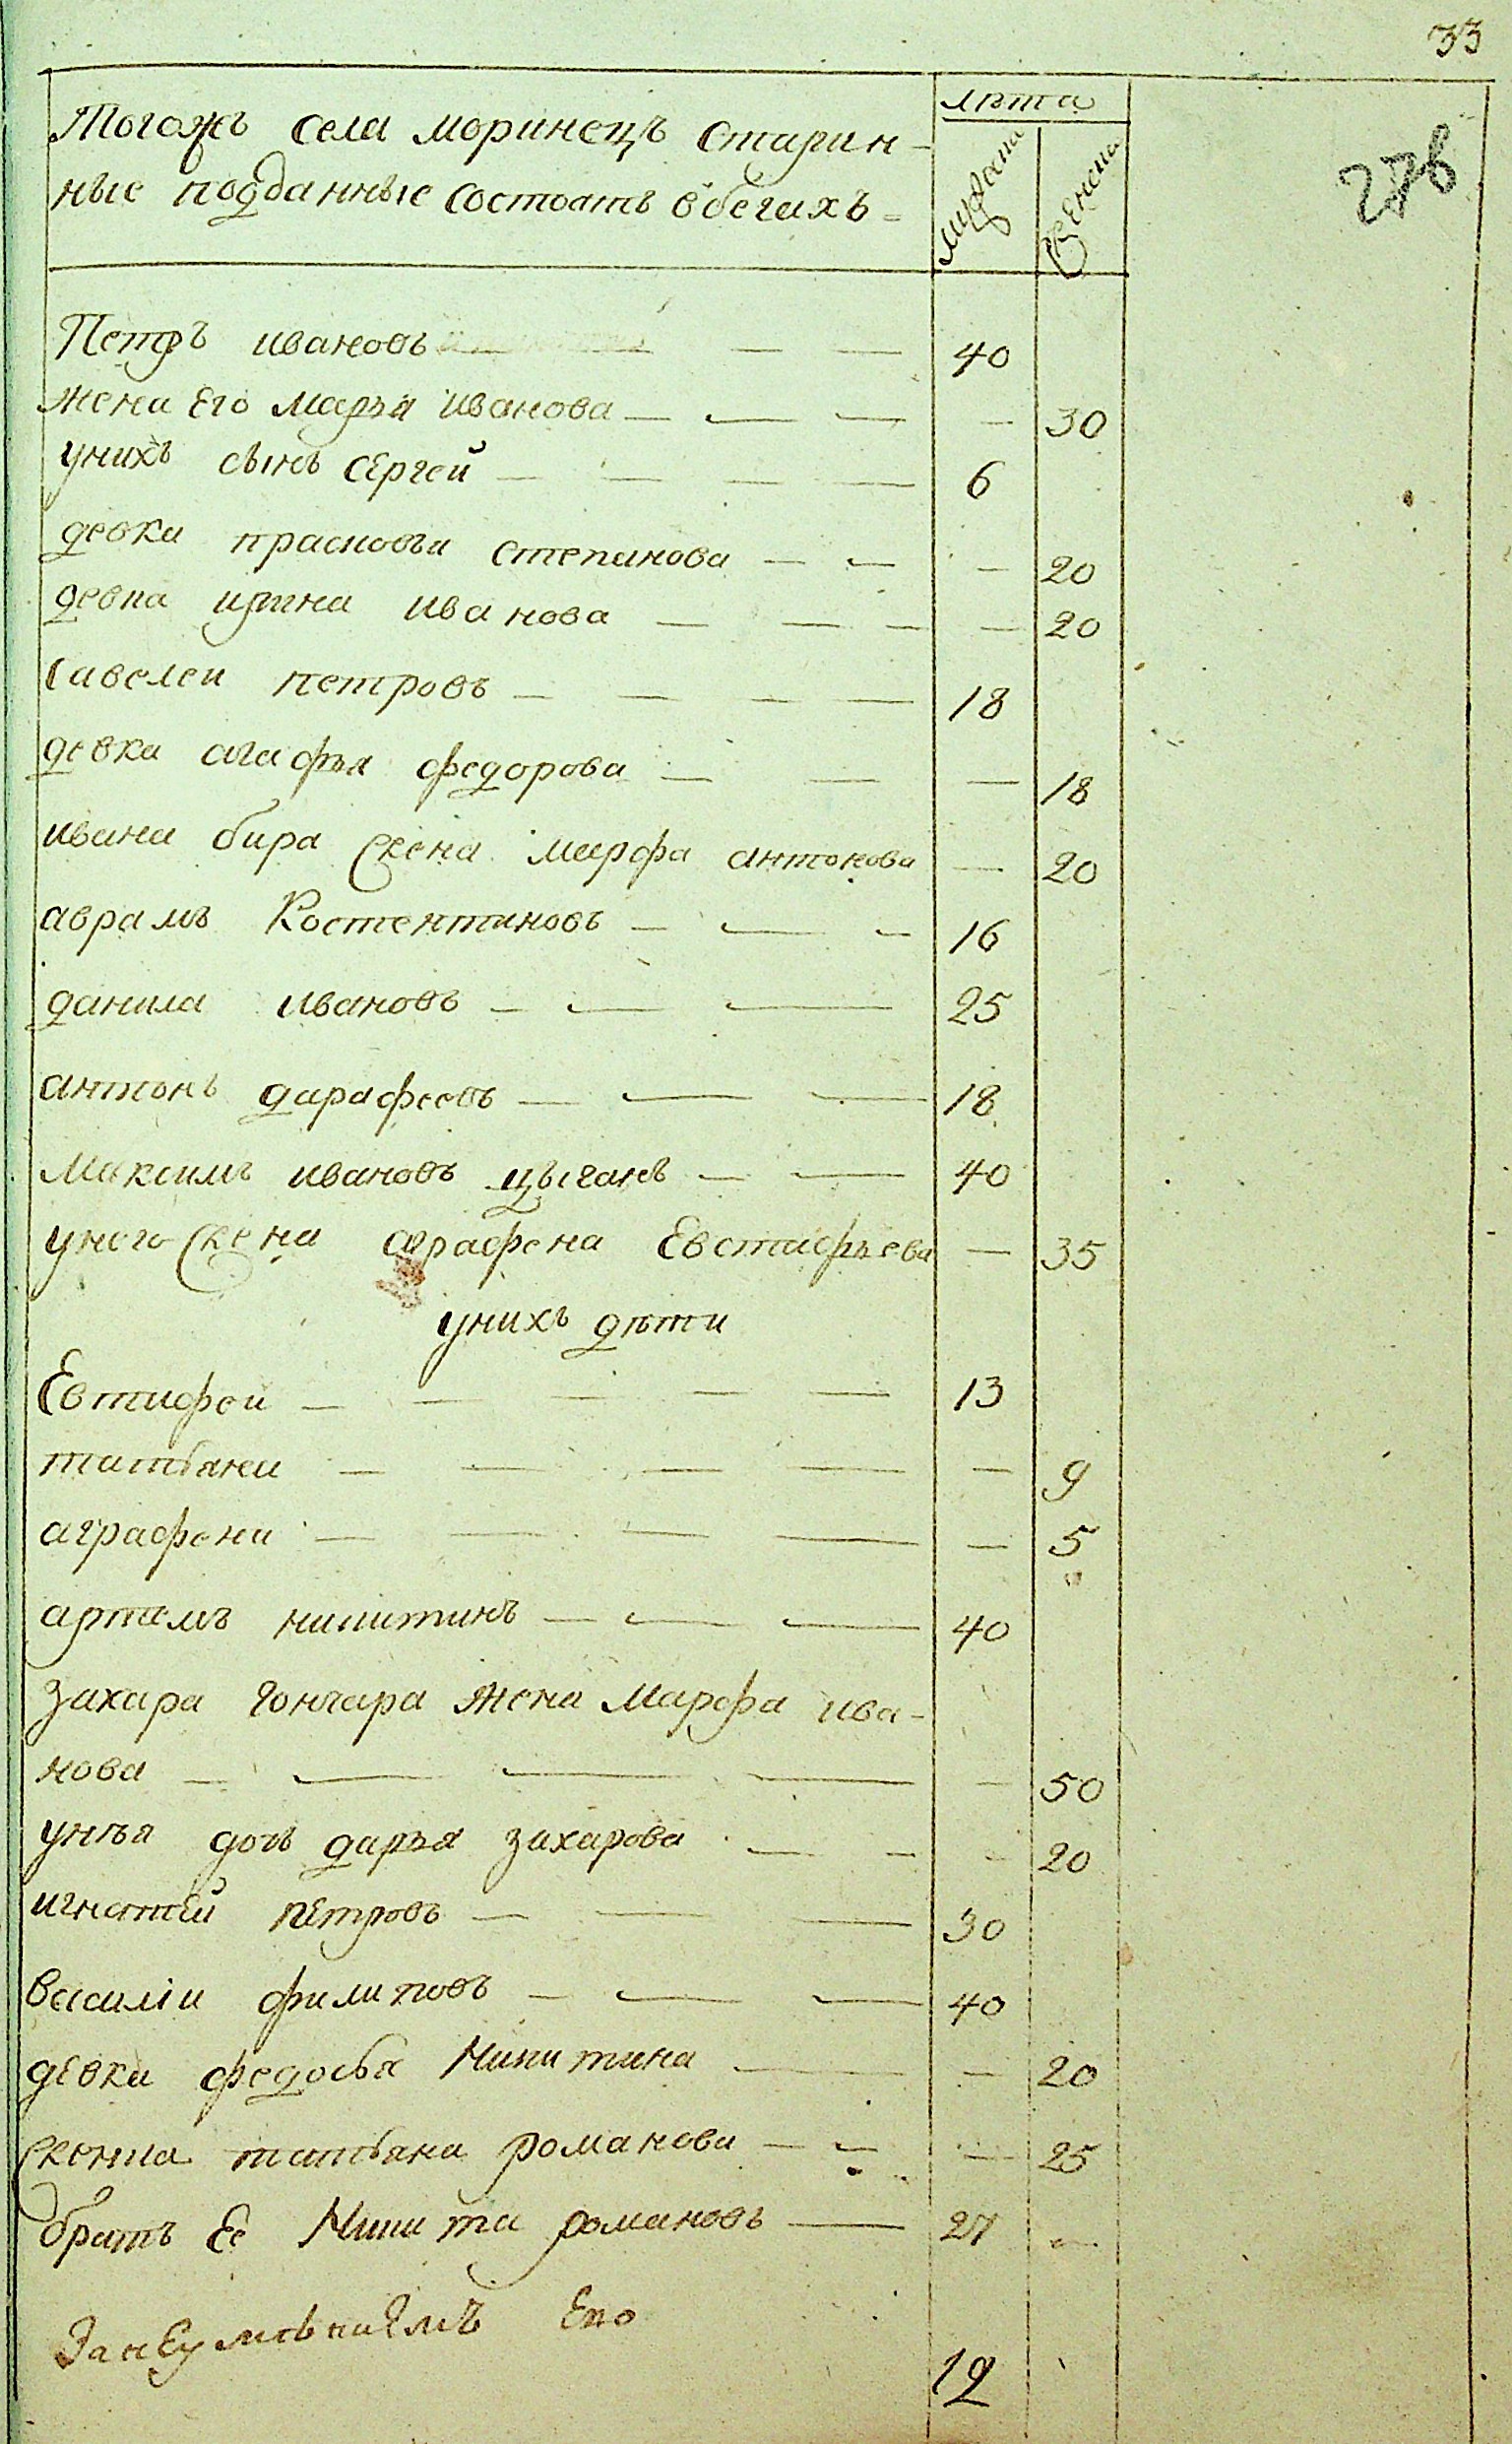 33
лѣта
Тогожъ села моринецъ старин-
ные подданные состоятъ вбегахъ
мужеска
женска
278
Петръ ивановъ — — — 40
жена Его марья иванова — — — — 30
унихъ сынъ сергей — — — — 6
девка прасковья степанова — — — 20
девка ирина иванова — — — — 20
савелеи петровъ — — — — 18
девка агафья федорова — — — 18
ивана бира жена марфа антонова — 20
аврамъ Костентиновъ — — — 16
данила ивановъ — — — 25
антонъ дарафеевъ — — — 18
Максимъ ивановъ цыганъ — — 40
унего жена аграфена Евстафьева — 35
унихъ дѣти
Евтифеи — — — — — 13
татьяна — — — — — 9
аграфена — — — — — 5
артемъ никитинъ — — — 40
захара гончара жена Марфа ива-
нова — — — — — 50
унѣя дочь дарья захарова — — — 20
игнатей петровъ — — — 30
василіи филиповъ — — — 40
девка федосья Никитина — — 20
женка татьяна романова — — — 25
братъ Ее Никита романовъ — 27 —
Его
12